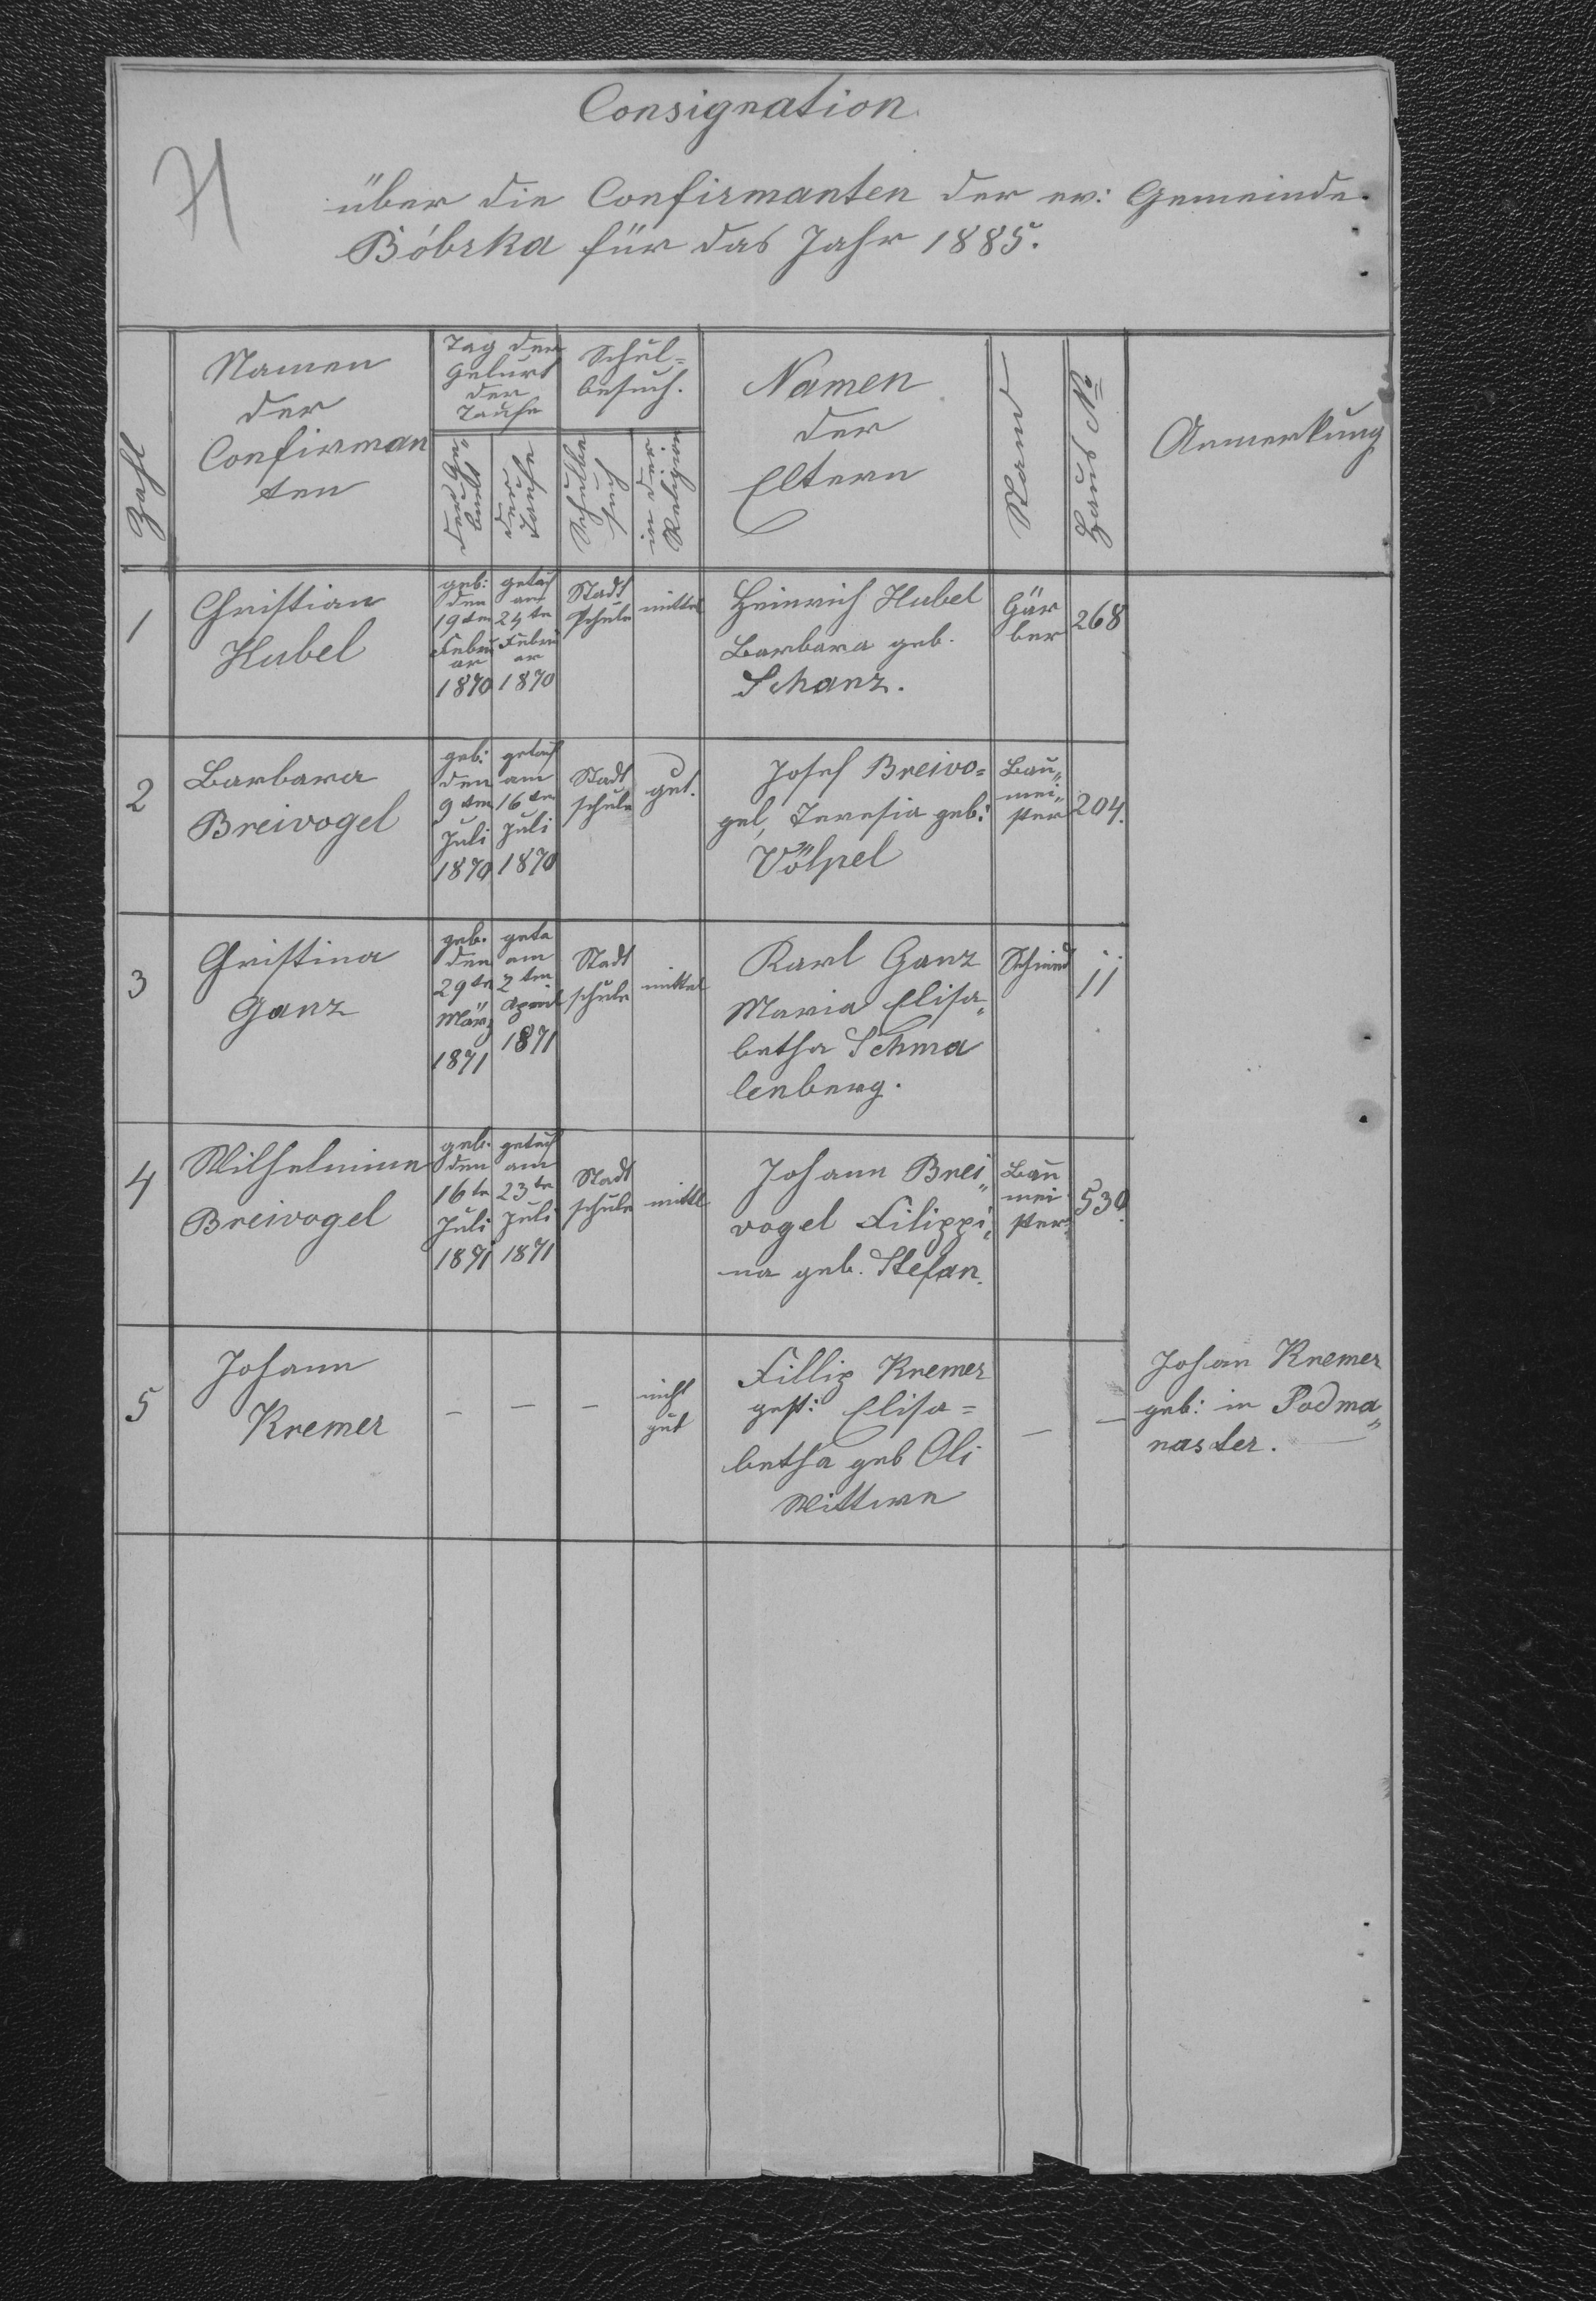 Consignation
über die Confirmanten der ev: Gemeinde
Bóbrka für das Jahr 1885.
Zahl
Namen
der
Confirman
ten
Tag der
Geburt
der
Taufe
der Ge„
burt
der
Taufe
Schul=
besuch.
Schulbe
such
in der
Religion
Namen
der
Eltern
Stand
Haus No
Anmerkung
1
Christian
Hubel
geb:
den
19ten
Febru
ar
1870
getauf
am
24ten
Febru
ar
1870
Stadt
schule
mittel
Heinrich Hubel
Barbara geb.
Schanz.
Gär
ber
268
2
Barbara
Breivogel
geb:
den
9ten
Juli
1870
getauf
am
16ten
Juli
1870
Stadt
schule
gut.
Josef Breivo=
gel, Teresia geb:
Völpel
Bau„
mei„
ster
204.
3
Christina
Ganz
geb.
den
29ten
März
1871
geta
am
2ten
April
1871
Stadt
schule
mittel
Karl Ganz
Maria Elisa„
betha Schma
lenberg.
Schmid
11
4
Wilhelmine
Breivogel
geb.
den
16ten
Juli
1871
getauf
am
23ten
Juli
1871
Stadt
schule
mittl
Johann Brei„
vogel Filippi„
na geb. Stefan.
Bau
mei
ster
530.
5
Johann
Kremer
— — —
nicht
gut
Fillip Kremer
gest: Elisa=
betha geb Oli
Wittwe
— —
Johan Kremer
geb: in Podma„
naster. —